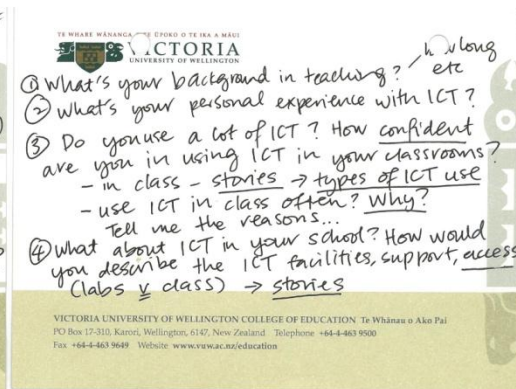 TE WHARE WĀNANGA O TE ŪPOKO O TE IKA A MĀUI
VICTORIA
UNIVERSITY OF WELLINGTON
how long
etc
① What's your background in teaching?
② What's your personal experience with ICT?
③ Do you use a lot of ICT? How confident
are you in using ICT in your classrooms?
- in class - stories → types of ICT use
- use ICT in class often? Why?
Tell me the reasons...
④ What about ICT in your school? How would
you describe the ICT facilities, support, access
(labs v class) → stories
VICTORIA UNIVERSITY OF WELLINGTON COLLEGE OF EDUCATION Te Whānau o Ako Pai
PO Box 17-310, Karori, Wellington, 6147, New Zealand. Telephone +64-4-463 9500
Fax +64-4-463 9649 Website www.vuw.ac.nz/education